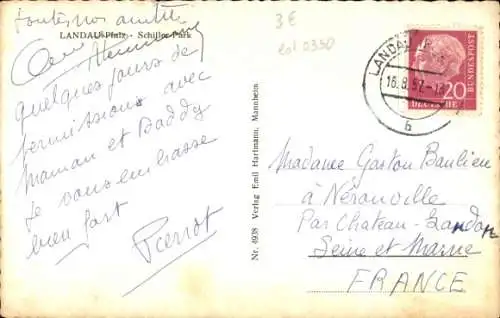 Toutes nos amitiés
LANDAU/Pfalz - Schiller-Park
quelques jours de
permissions avec
Maman et Daddy
Je vous embrasse
bien fort
Pierrot
3€
Nr. 4938 Verlag Emil Hartmann, Mannheim
LANDAU
16.8.57
b
20
DEUTSCHE
BUNDESPOST
Madame Gaston Baulieu
à Néronville
Par Chateau-Landon
Seine et Marne
FRANCE